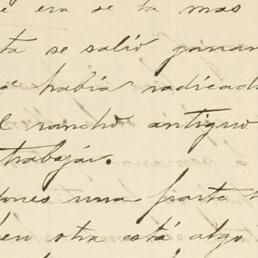 era de la mas
ta se salió ganan
qe había radicad
l rancho antiguo
trabajar.
ones una parte
en otra está algo